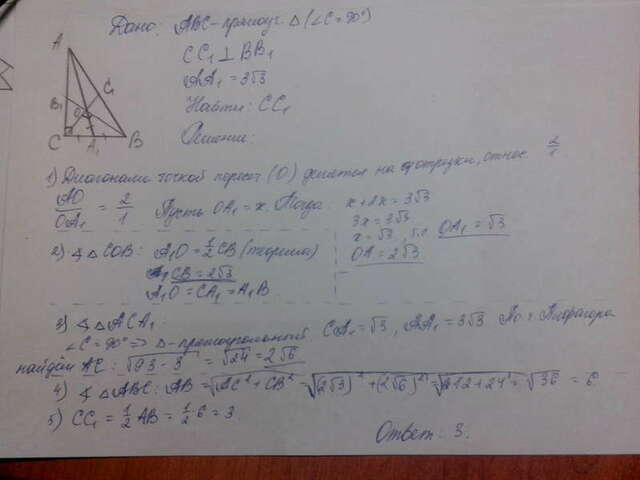 Дано: ABC - прямоуг. Δ (∠C = 90°)
CC₁ ⊥ BB₁
AA₁ = 3√3
Найти: CC₁
Решение:
A
B₁
C₁
O
C
A₁
B
1) Диагонали точкой пересеч (O) делятся на отрезки, относ. 2/1
AO/OA₁ = 2/1 Пусть OA₁ = x. Тогда: x + 2x = 3√3
3x = 3√3
x = √3, OA₁ = √3
OA = 2√3
2) ∢ Δ COB: A₁O = 1/2 CB (теорема)
CB = 2√3
A₁O = CA₁ = A₁B
3) ∢ Δ ACA₁:
∠C = 90° => Δ - прямоугольный CA₁ = √3, AA₁ = 3√3 По т. Пифагора
найдём AC: = √24 = 2√6
4) ∢ Δ ABC: AB = √AC² + CB² = √(2√3)² + (2√6)² = √12 + 24 = √36 = 6
5) CC₁ = 1/2 AB = 1/2 · 6 = 3
Ответ: 3.